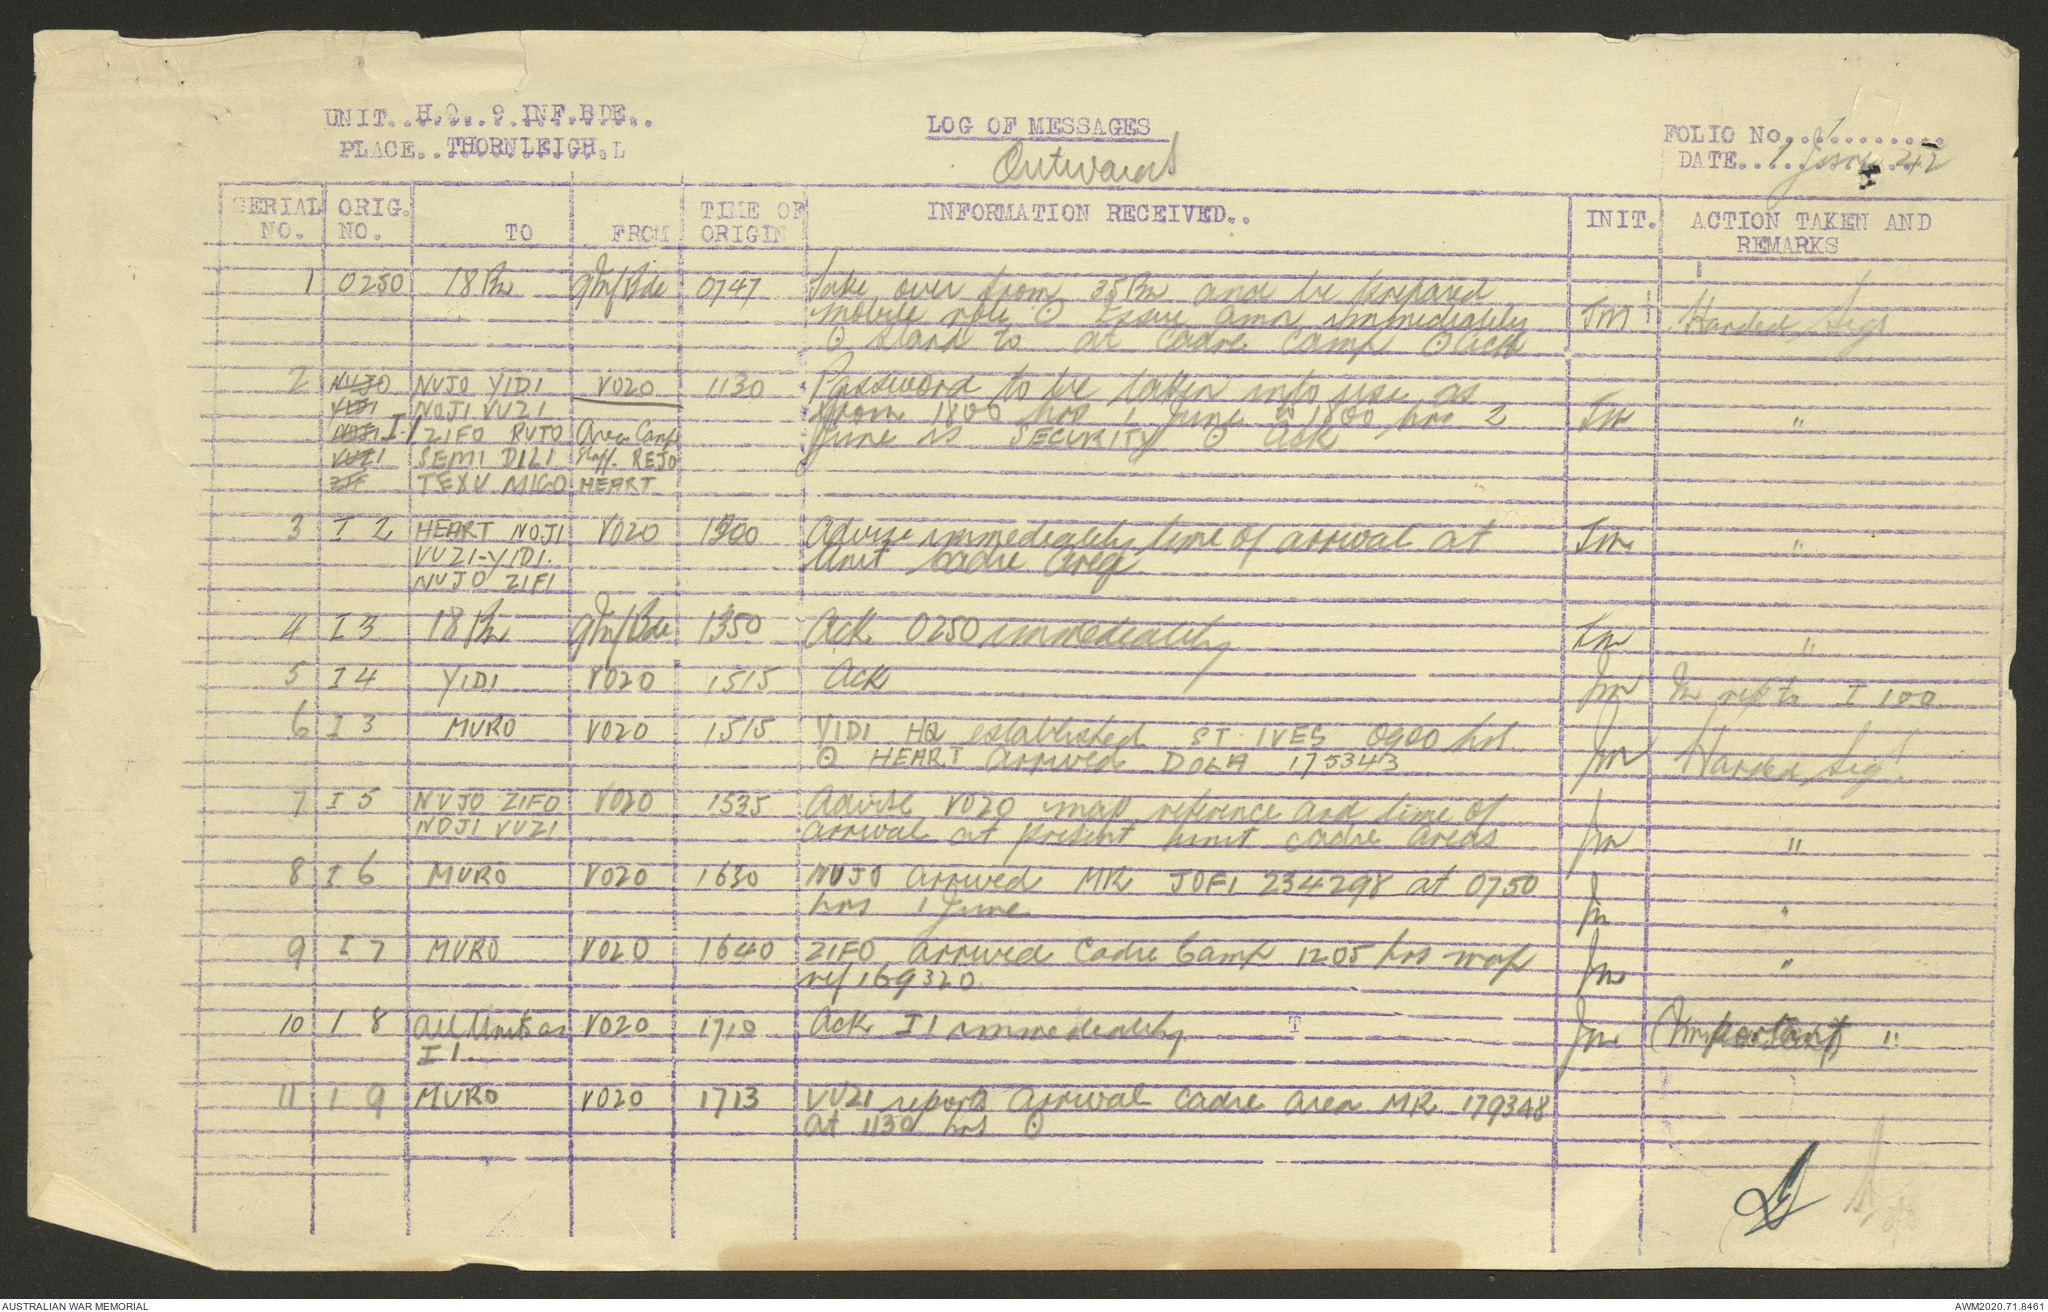 UNIT..H.Q..9.INF.BDE..
PLACE..THORNLEIGH.L
LOG OF MESSAGES
Outwards
FOLIO NO...1.........
DATE..1 June 42
SERIAL NO. ORIG. NO. TO FROM TIME OF ORIGIN INFORMATION RECEIVED.. INIT. ACTION TAKEN AND REMARKS
1 0250 18 Bn 9 Inf Bde 0747 Take over from 35 Bn and be prepared
mobile role ⊙ Issue amn immediately Jm Handed Sigs
⊙ stand to at cadre camp ⊙ ack
2 NUJO NUJO YIDI VO20 1130 Password to be taken into use as
YIDI NOJI VUZI from 1800 hrs 1 June to 1800 hrs 2 Jm "
NOJI I.1 ZIFO RUTO Area Comd June is SECURITY ⊙ ack
VUZI SEMI DILI Staff. REJO
ZIF TEXU MIGO HEART
3 I 2 HEART NOJI VO20 1300 Advise immediately time of arrival at Jm "
VUZI-YIDI. Unit Cadre Area
NUJO ZIFI
4 I 3 18 Bn 9 Inf Bde 1350 Ack 0250 immediately Jm "
5 I 4 YIDI VO20 1515 Ack Jm In rep to I 100
6 I 3 MURO VO20 1515 YIDI HQ established ST IVES 0900 hrs
⊙ HEART Arrived DOLA 175343 Jm Handed Sigs
7 I 5 NUJO ZIFO VO20 1535 Advise VO20 map reference and time of
NOJI VUZI arrival at present unit cadre areas Jm "
8 I 6 MURO VO20 1630 NUJO arrived MR JOFI 234298 at 0750
hrs 1 June Jm "
9 I 7 MURO VO20 1640 ZIFO arrived Cadre Camp 1205 hrs map
ref 169320 Jm "
10 I 8 All Units as VO20 1710 Ack I1 immediately T Jm (Important) "
I 1.
11 I 9 MURO VO20 1713 VUZI reports arrival cadre area MR 179348
at 1130 hrs ⊙
AUSTRALIAN WAR MEMORIAL
AWM2020.71.8461